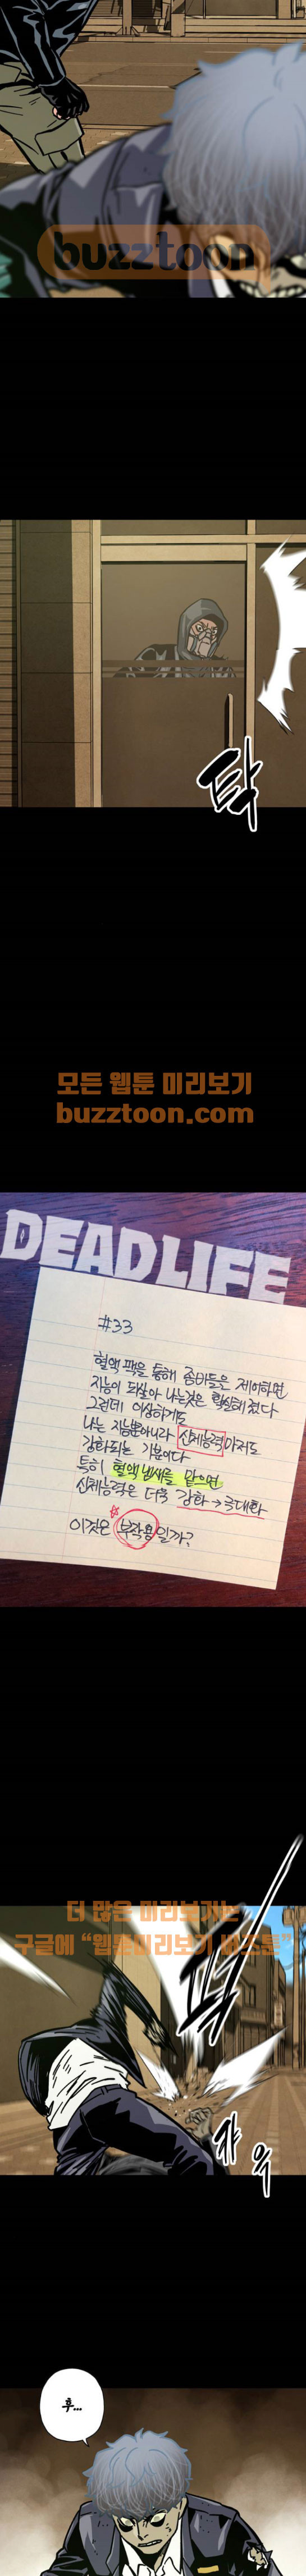 buzztoon
탁
모든 웹툰 미리보기
buzztoon.com
DEAD LIFE
#33
혈액 팩을 통해 좀비들을 제어하면
지능이 되살아 나는것은 확실해졌다
그런데 이상하게도
나는 지능뿐아니라 신체능력마저도
강화되는 기분이다
특히 혈액냄새를 맡으면
신체능력은 더욱 강화 → 극대화
이것은 부작용일까?
더 많은 미리보기는
구글에 “웹툰미리보기 버즈툰”
후...